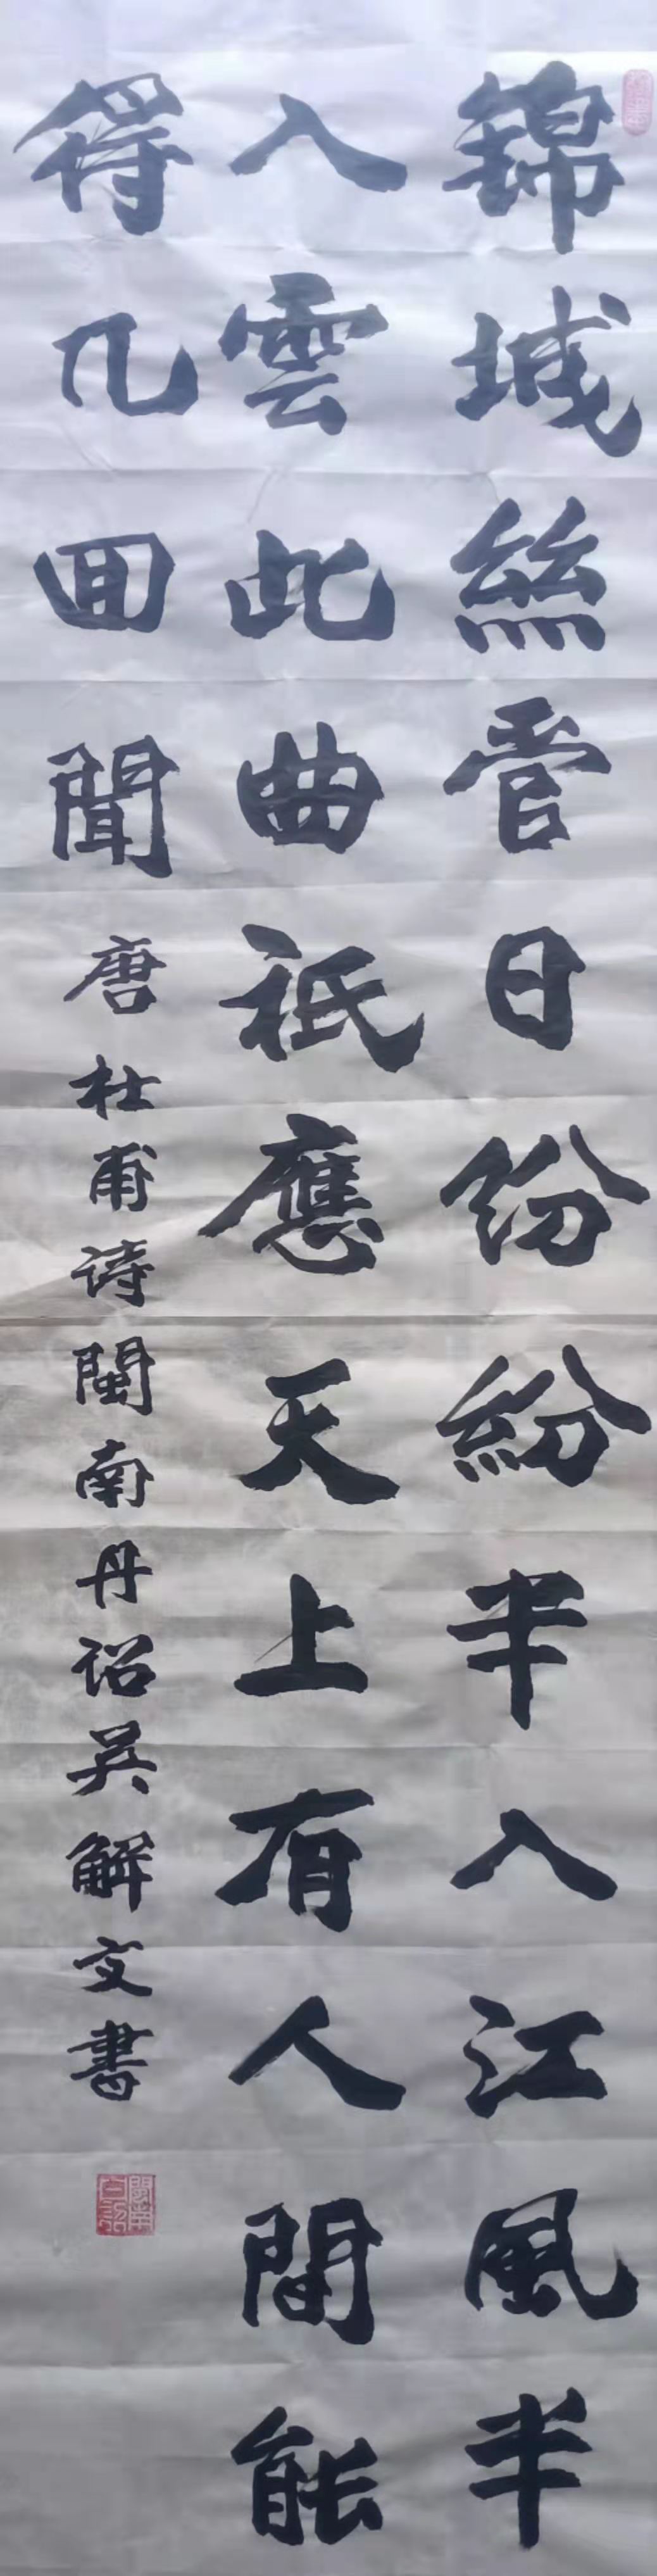 錦城絲管日纷紛半入江風半
入雲此曲祇應天上有人間能
得几回聞唐杜甫诗閩南丹诏吴解文書